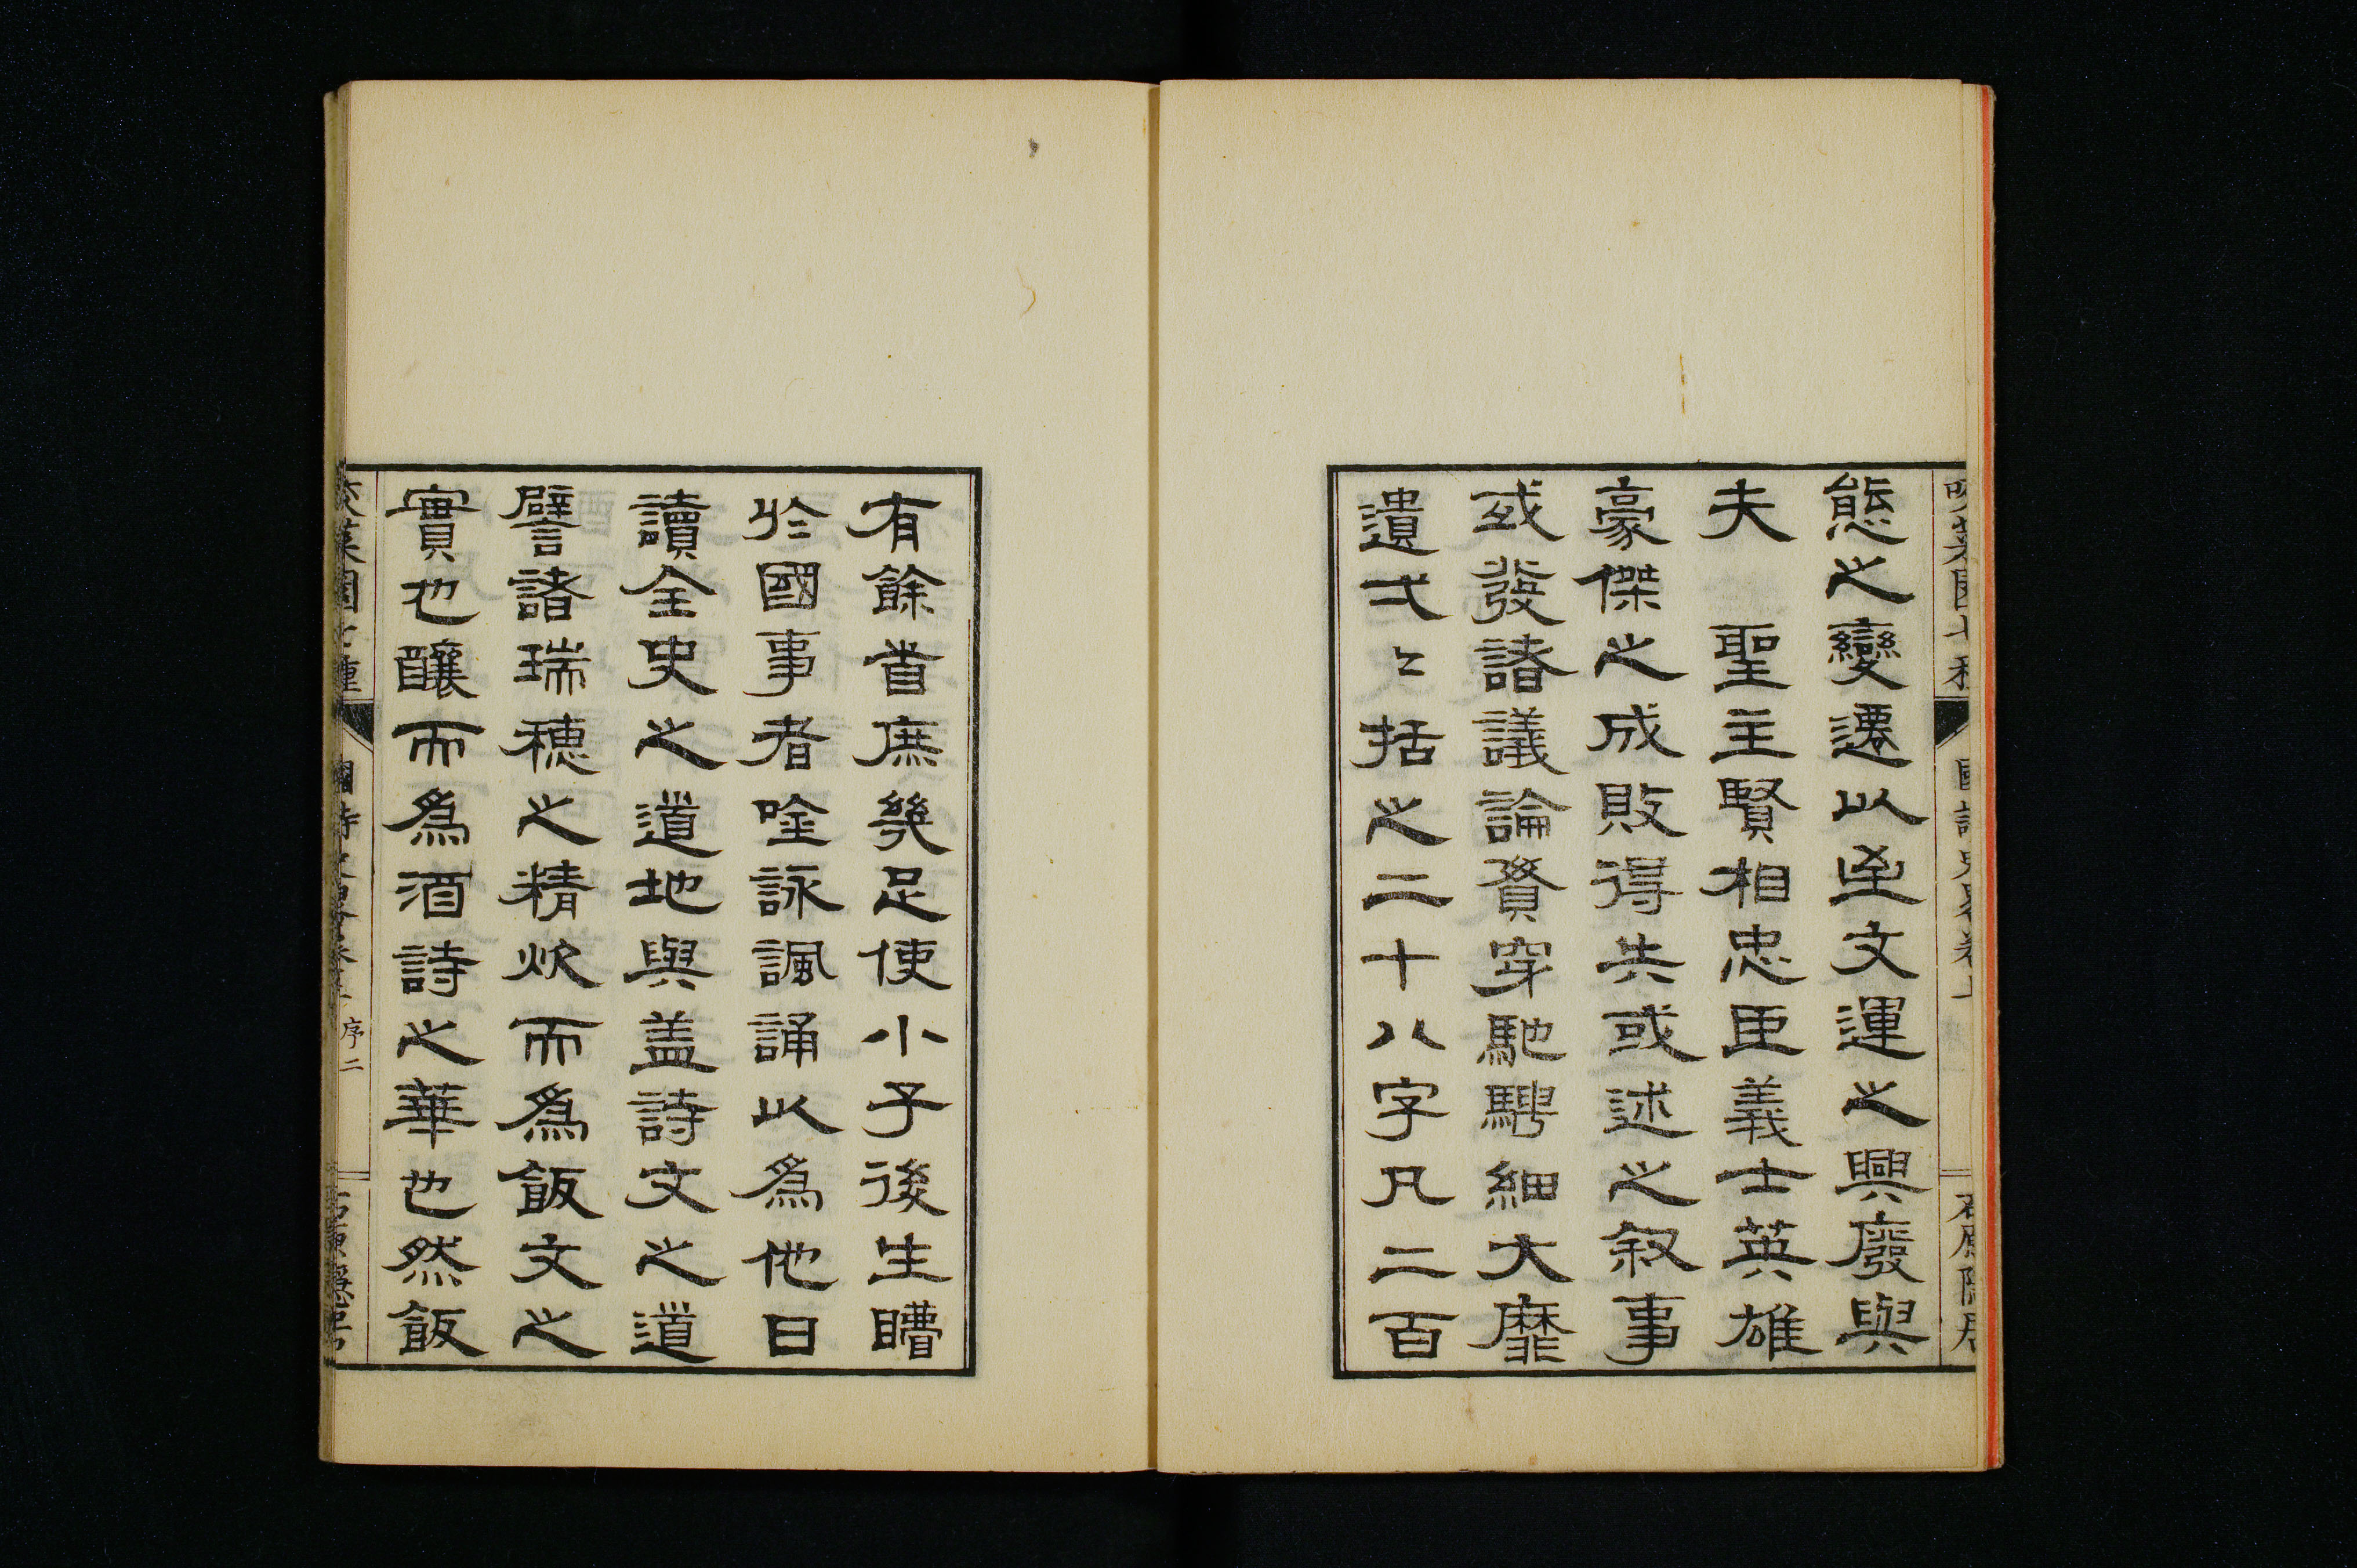 態之變遷以至文運之興廢與
夫　聖主賢相忠臣義士英雄
豪傑之成敗得失或述之叙事
或發諸議論賛穿馳騁細大靡
遺弌〻括之二十八字凡二百
有餘首庶幾足使小子後生瞢
於國事者唫詠諷誦以爲他日
讀全史之道地與盖詩文之道
譬諸瑞穂之精炊而爲飯文之
實也釀而爲酒詩之華也然飯
序二